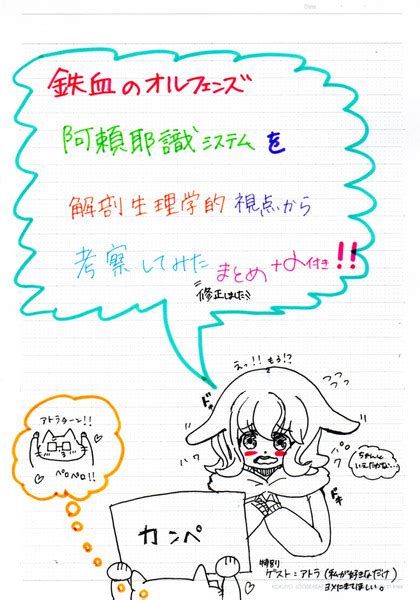 Date
鉄血のオルフェンズ
阿頼耶識システムを
解剖生理学的視点から
考察してみたまとめ+α付き!!
修正しました
えっ!!もう!?
アトラちゃーん!!
ペロペロ!!
ドキ
カンペ
特別
ゲスト:アトラ(私が好きなだけ)
ヨメにきてほしい。